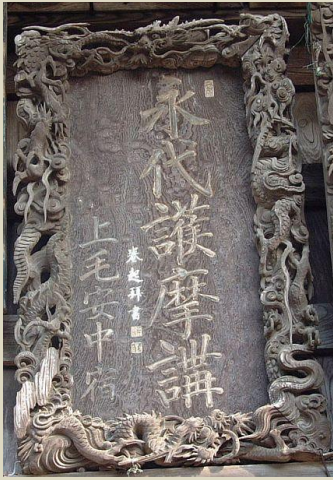 永代護摩講
秦起祥書
上毛安中宿